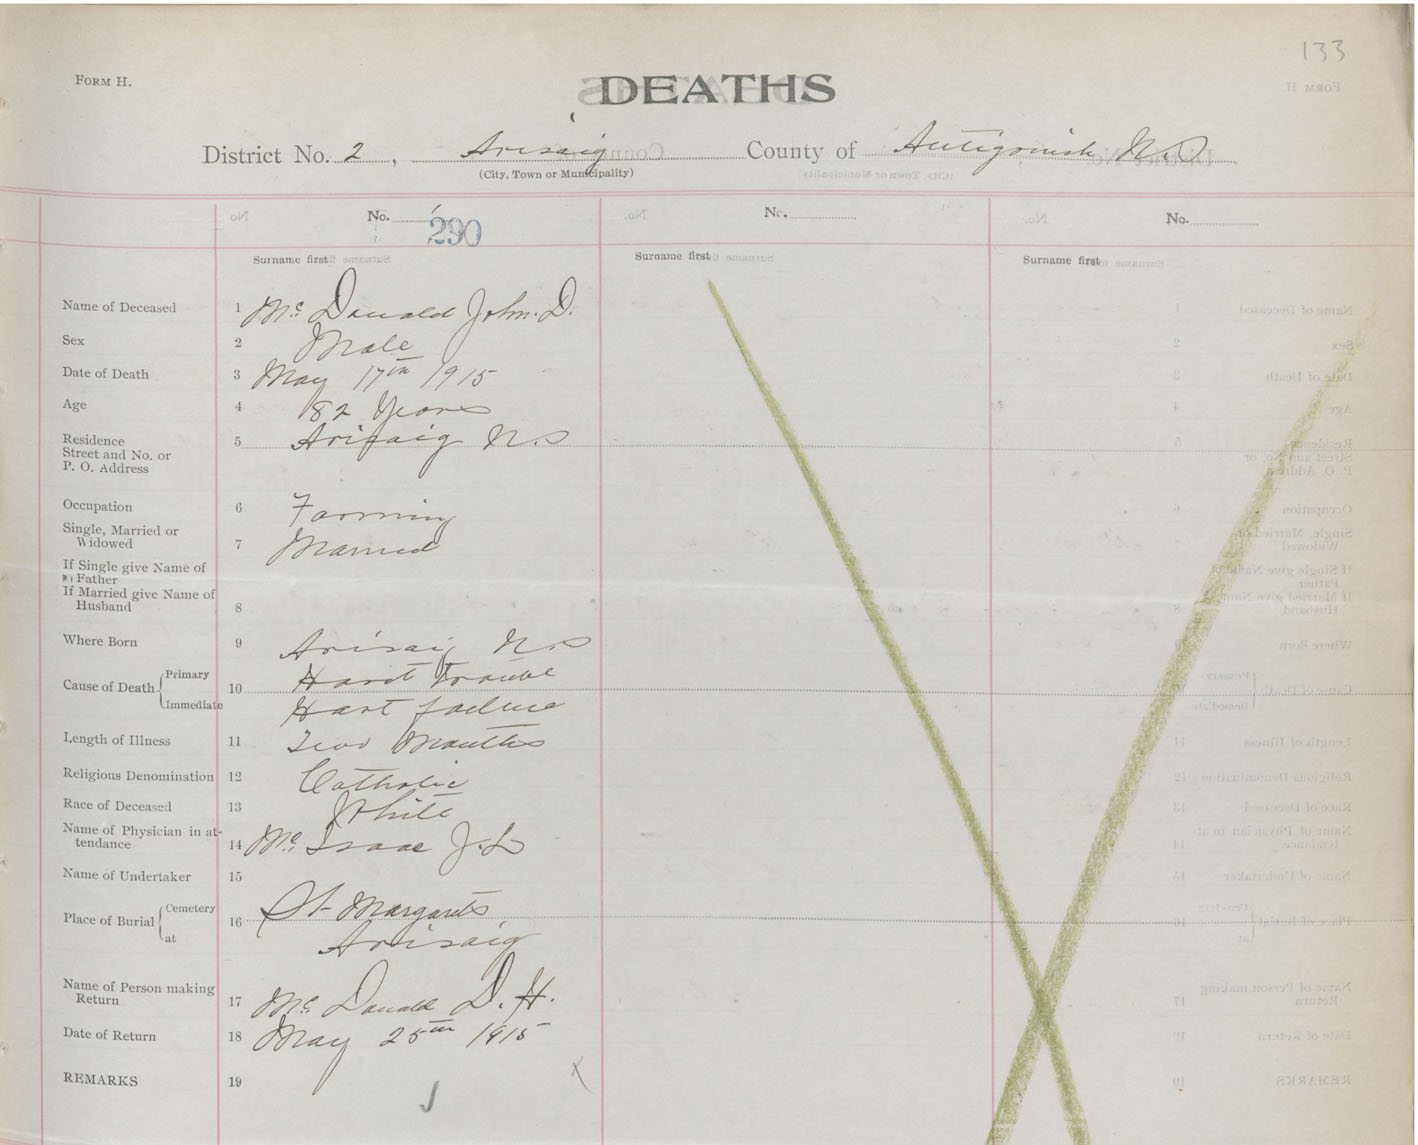 133
FORM H.
DEATHS
District No. 2, Arisaig County of Antigonish N.S
(City, Town or Municipality)
No. No. No.
290
Surname first Surname first Surname first
Name of Deceased 1 Mc Donald John. D.
Sex 2 Male
Date of Death 3 May 17th 1915
Age 4 82 Years
Residence 5 Arisaig N.S
Street and No. or
P. O. Address
Occupation 6 Farming
Single, Married or
Widowed 7 Married
If Single give Name of
Father
If Married give Name of
Husband 8
Where Born 9 Arisaig N.S
Primary Hart Trouble
Cause of Death 10
Immediate Hart failure
Length of Illness 11 Two Months
Religious Denomination 12 Catholic
Race of Deceased 13 White
Name of Physician in at-
tendance 14 Mc Isaac J.
Name of Undertaker 15
Cemetery St Margarets
Place of Burial 16
at Arisaig
Name of Person making
Return 17 Mc Donald D. H.
Date of Return 18 May 25th 1915
REMARKS 19